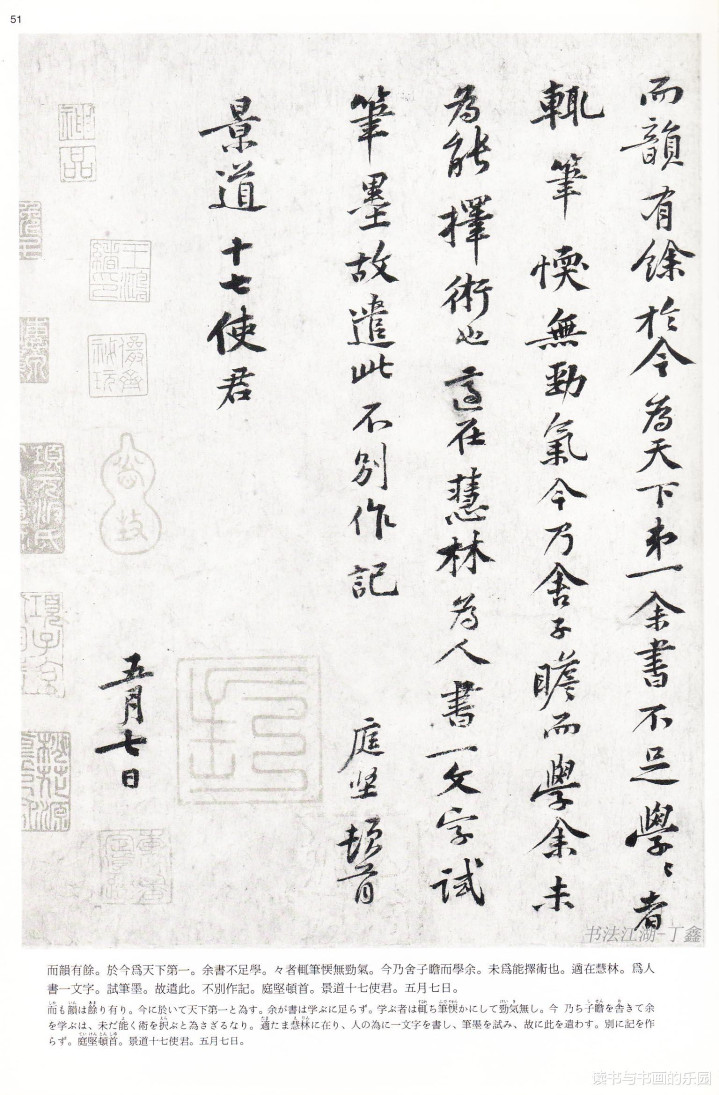 51
而韻有餘於今為天下弟一余書不足學〻者
輒筆愞無勁氣今乃舍子瞻而學余未
為能擇術也適在慧林為人書一文字試
筆墨故遣此不別作記
庭堅頓首
景道十七使君
五月七日
神品
書法江湖-丁鑫
而韻有餘。於今爲天下第一。余書不足學。々者輒筆愞無勁氣。今乃舍子瞻而學余。未爲能擇術也。適在慧林。爲人
書一文字。試筆墨。故遣此。不別作記。庭堅頓首。景道十七使君。五月七日。
而も韻は餘り有り。今に於いて天下第一と為す。余が書は学ぶに足らず。学ぶ者は輒ち筆愞かにして勁気無し。今 乃ち子瞻を舎きて余
を学ぶは、未だ能く術を択ぶと為さざるなり。適たま慧林に在り、人の為に一文字を書し、筆墨を試み、故に此を遣わす。別に記を作
らず。庭堅頓首。景道十七使君。五月七日。
读书与书画的乐园